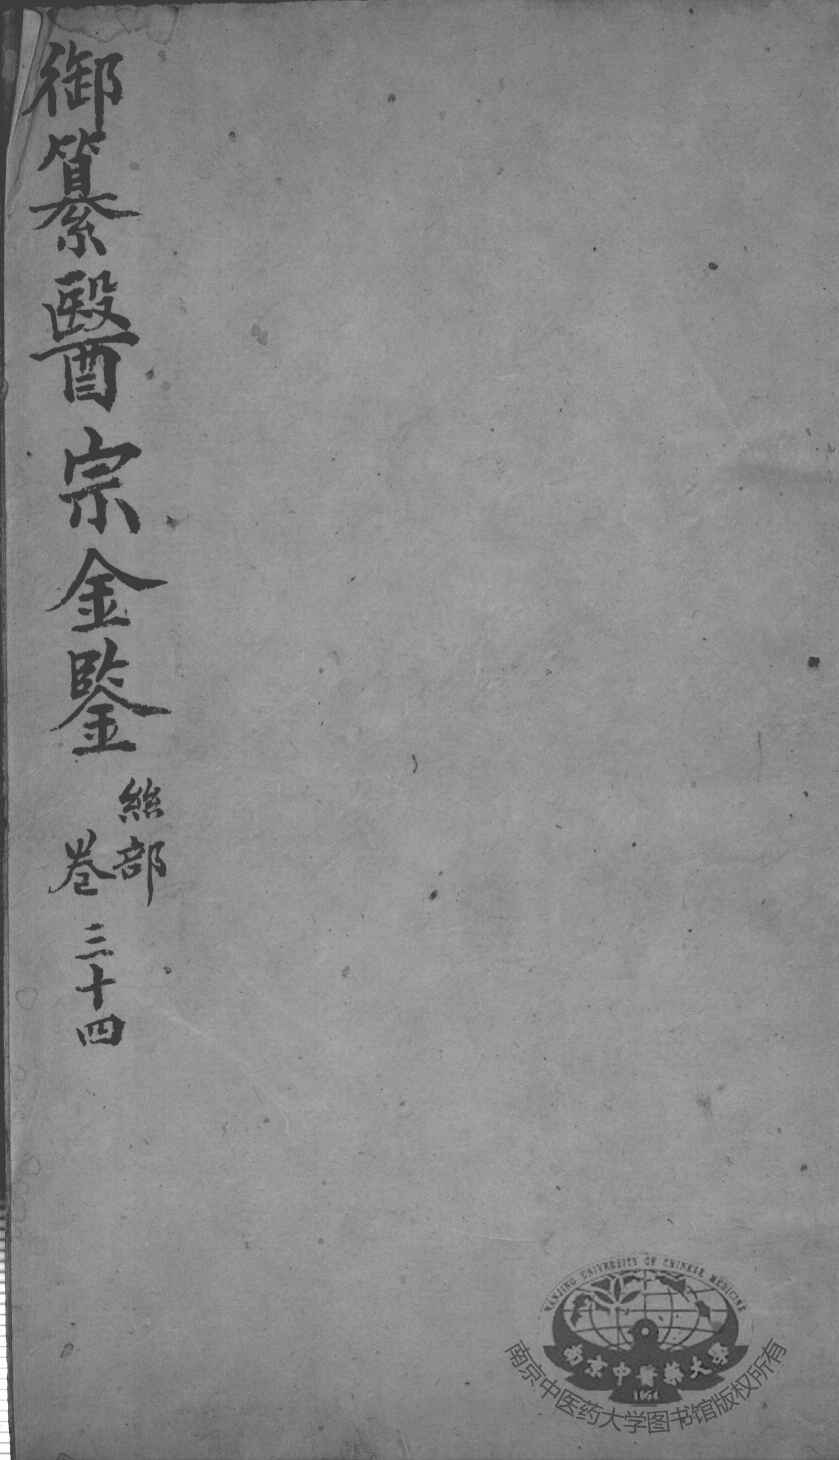 御纂醫宗金鑒
絲部
卷三十四
NANJING UNIVERSITY OF CHINESE MEDICINE
南京中醫藥大學
1954
南京中医药大学图书馆版权所有